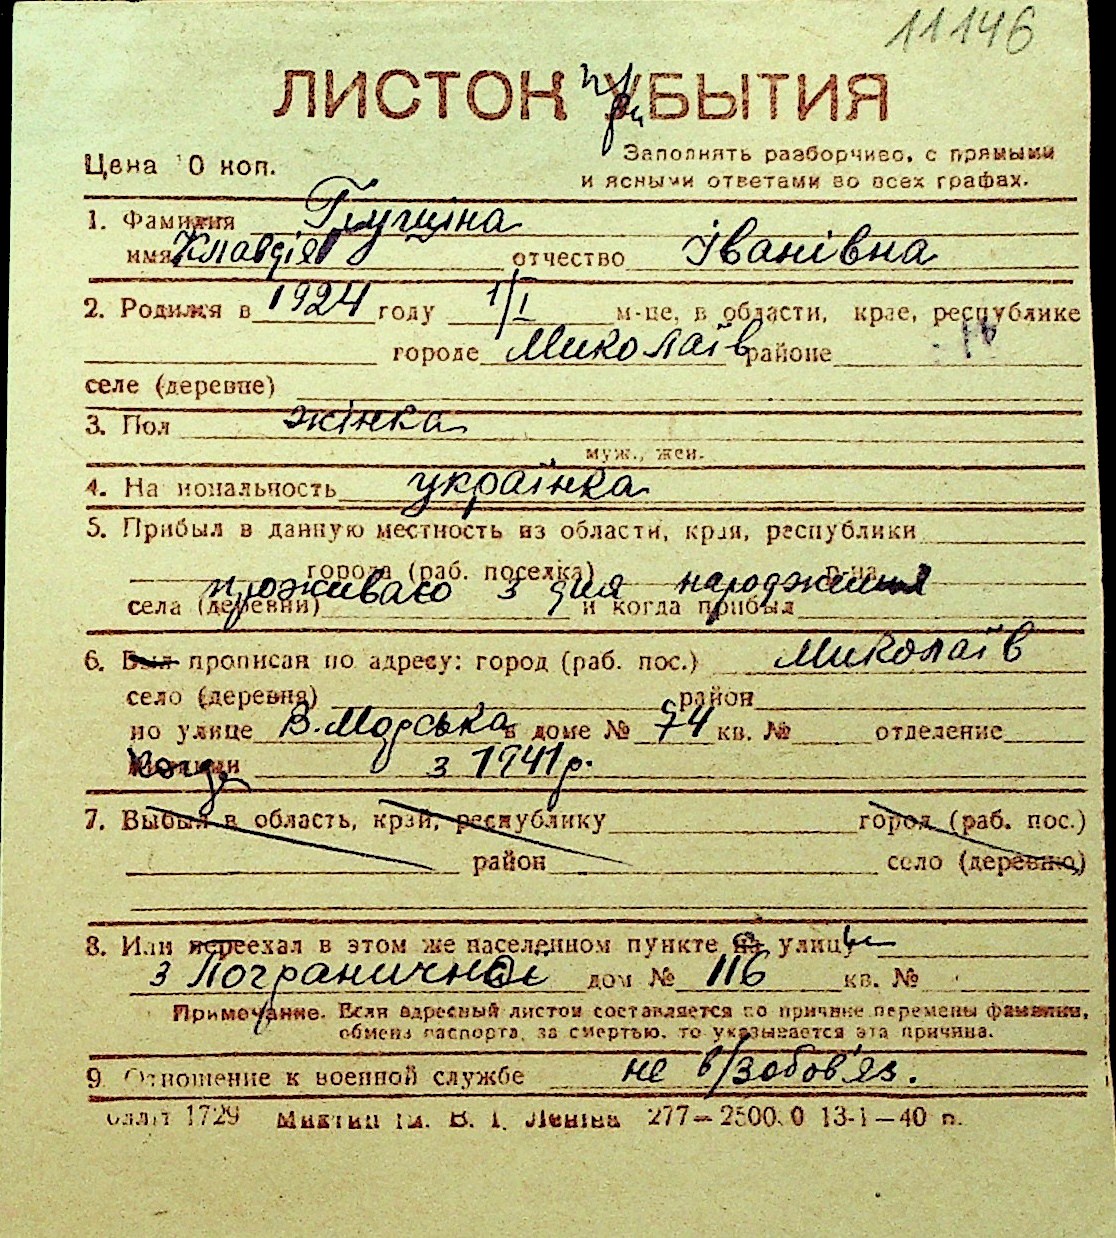 11146
ЛИСТОК при УБЫТИЯ
Цена 10 коп.
Заполнять разборчиво, с прямыми
и ясными ответами во всех графах.
1. Фамилия Глущіна
имя Клавдія отчество Іванівна
2. Родился в 1924 году 1/I м-це, в области, крае, республике
городе Миколаїв районе
селе (деревне)
3. Пол жінка
муж., жен.
4. Национальность українка
5. Прибыл в данную местность из области, края, республики
города (раб. поселка) р-на
проживаю з дня народження
села (деревни) и когда прибыл
6. Был прописан по адресу: город (раб. пос.) Миколаїв
село (деревня) район
по улице В. Морська в доме № 74 кв. № отделение
з 1941 р.
7. Выбыл в область, край, республику город (раб. пос.)
район село (деревню)
8. Или переехал в этом же населенном пункте на улицу
з Пограничної дом № 116 кв. №
Примечание. Если адресный листок составляется по причине перемены фамилии,
обмена паспорта, за смертью, то указывается эта причина.
9. Отношение к военной службе не в/зобов'яз.
1729 ім. В. І. Леніна 277–2500.0 13-1–40 п.